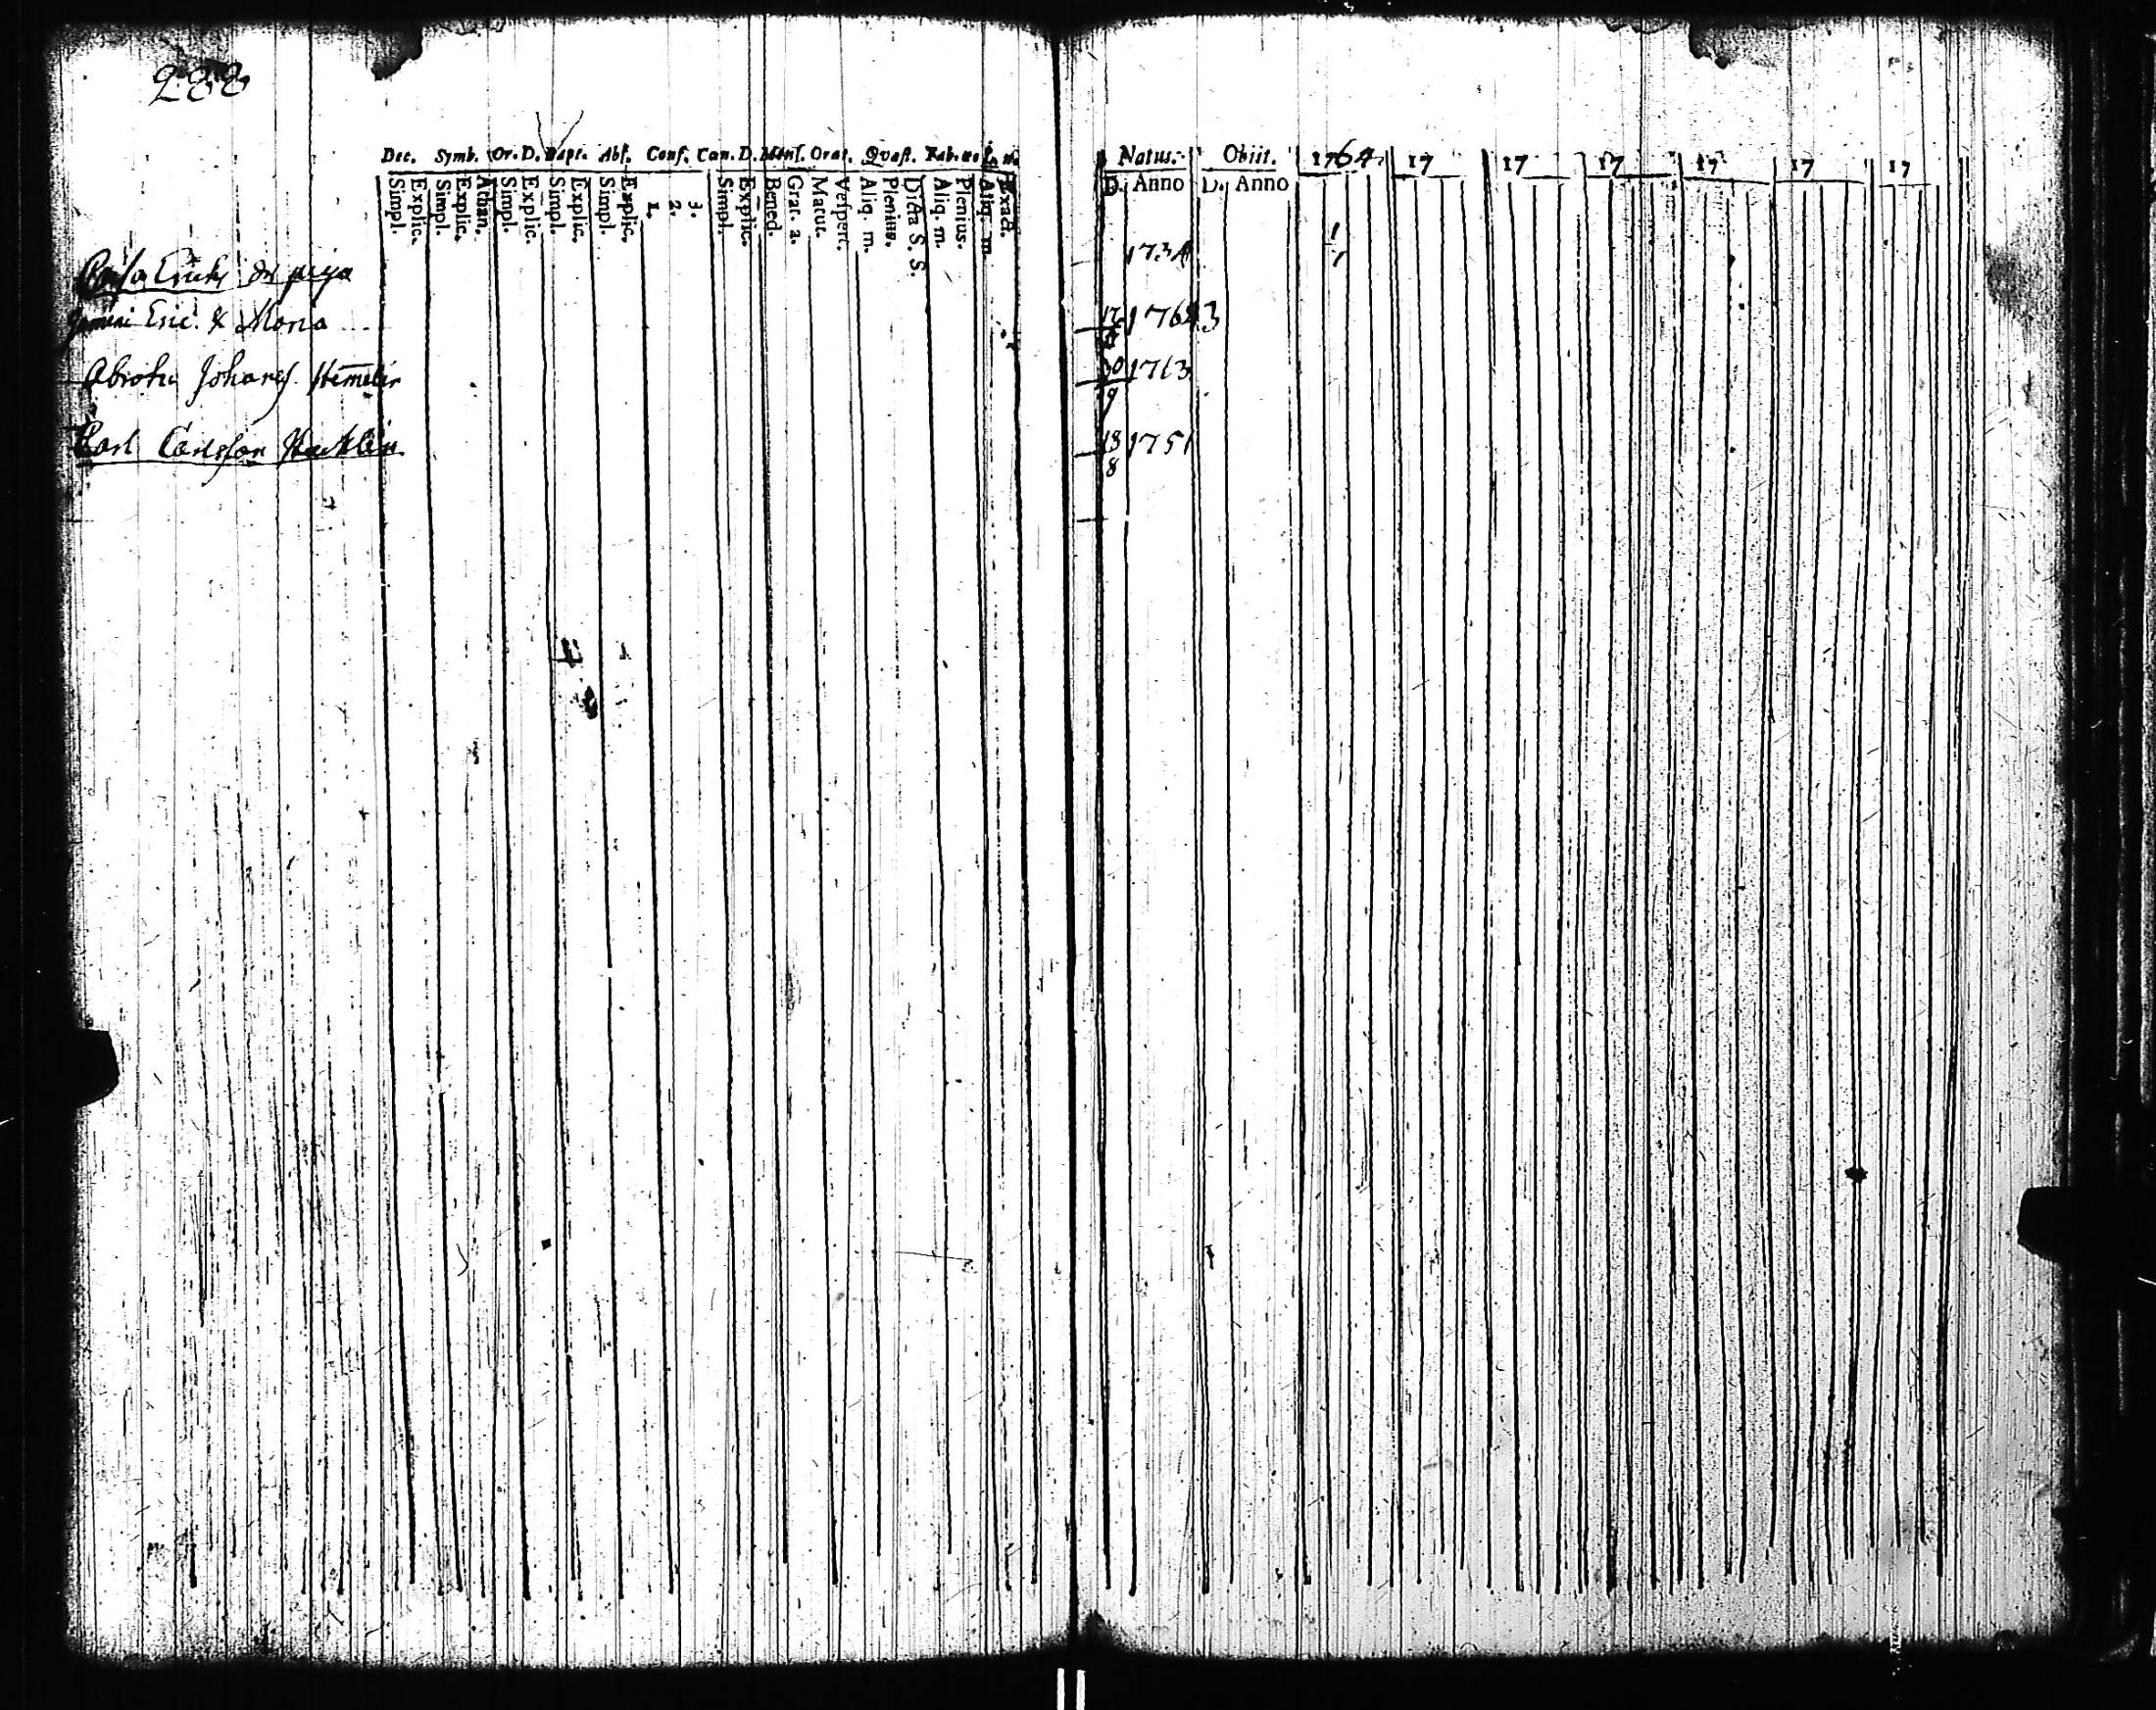 288
Dec. Symb. Or. D. Bapt. Abs. Conf. Can. D. Mens. Orat. Quæst. Tab. œc.
Simpl. Explic. Simpl. Explic. Athan. Simpl. Explic. Simpl. Explic. Simpl. Explic. 1. 2. 3. Simpl. Explic. Bened. Grat. a. Matut. Vespert. Aliq. m. Plenius. Dicta S. S. Aliq. m. Plenius. Aliq. m. Exact.
Natus. Obiit. 1764 17 17 17 17 17 17
D. Anno D. Anno
1734 1/1
Eric & Maria 17643
Johanes 30/9 1763
Carl Carlsson 18/8 1751